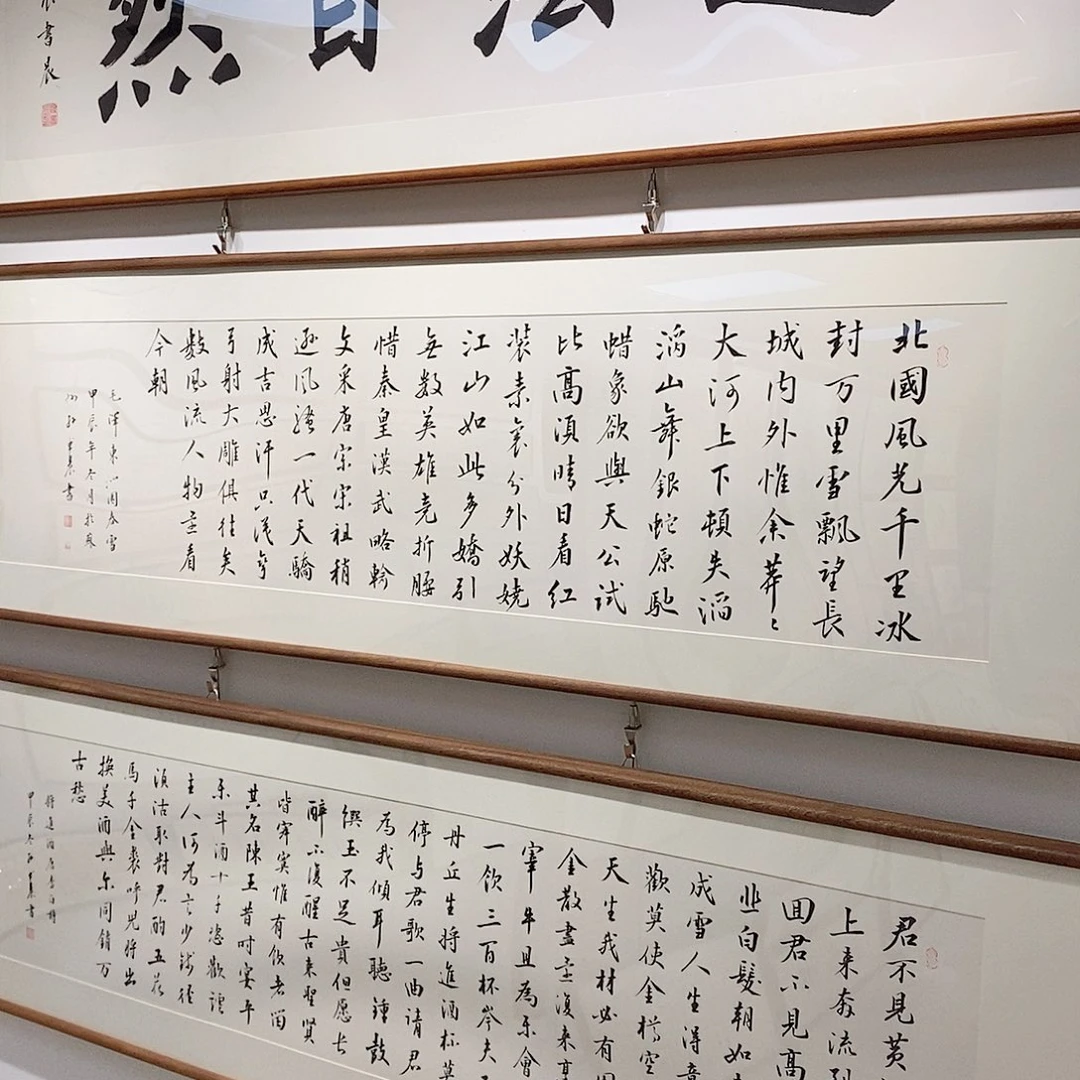 法自然
北國風光千里冰
封万里雪飄望長
城内外惟余莽々
大河上下頓失滔
滔山舞銀蛇原馳
蜡象欲與天公試
比高須晴日看紅
装素裹分外妖娆
江山如此多嬌引
無数英雄竞折腰
惜秦皇漢武略輸
文采唐宗宋祖稍
逊風騷一代天驕
成吉思汗只识弯
弓射大雕俱往矣
数風流人物还看
今朝
毛澤東沁園春雪
甲辰年冬月於
君不見黄
上来奔流到
回君不見高
悲白髮朝如
成雪人生得意
歡莫使金樽空
天生我材必有用
金散盡还復来烹
宰牛且為乐會
一飲三百杯岑夫
丹丘生将進酒杯莫
停与君歌一曲请君
為我傾耳聽鐘鼓
馔玉不足貴但愿长
醉不復醒古来聖賢
皆寂寞惟有飲者留
其名陳王昔时宴平
乐斗酒十千恣歡謔
主人何為言少錢徑
須沽取對君酌五花
馬千金裘呼兒将出
換美酒與尔同銷万
古愁
将進酒唐李白詩
甲辰冬